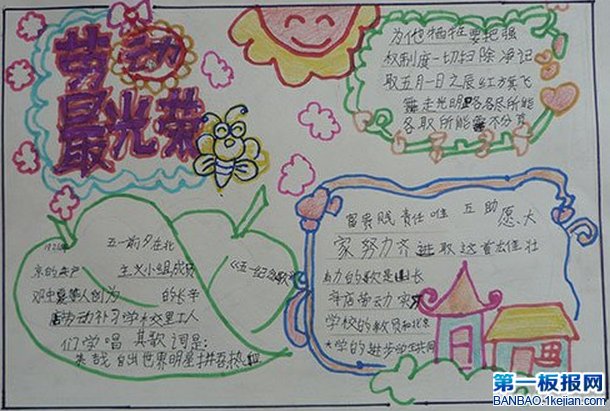 劳动
最光荣
为他牺牲要把强
权制度一切扫除净记
取五月一日之辰红旗飞
走光明 各尽所能
各取所能需不分
五一前夕在北
京的共产 主义小组成员 《五一纪念歌》
邓中夏等人创 的长辛
店劳动补习学校里工人
们学唱 其歌词是:
美哉自由世界明星拼吾热血
富贵贱责任唯 互助 愿大
家努力齐进取这首雄壮
有力的歌是由长
辛店劳动
学校的教员和北京
大学的进步学生共同
第一板报网
BANBAO-1kejian.com